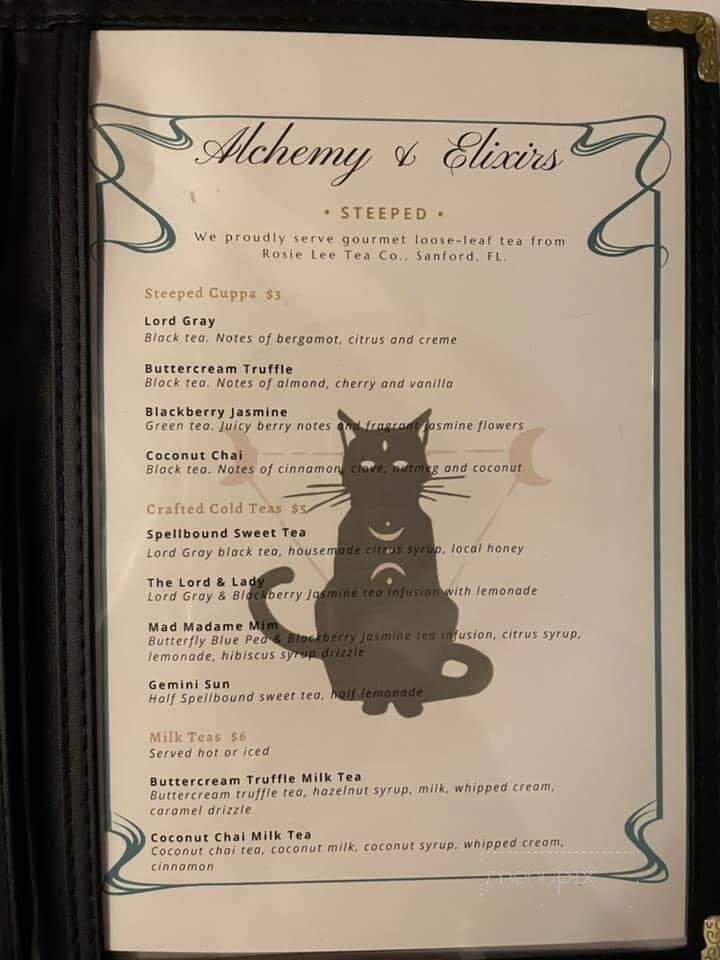 Alchemy & Elixirs
• STEEPED •
We proudly serve gourmet loose-leaf tea from
Rosie Lee Tea Co., Sanford, FL.
Steeped Cuppa $3
Lord Gray
Black tea. Notes of bergamot, citrus and creme
Buttercream Truffle
Black tea. Notes of almond, cherry and vanilla
Blackberry Jasmine
Green tea. Juicy berry notes and fragrant jasmine flowers
Coconut Chai
Black tea. Notes of cinnamon, clove, nutmeg and coconut
Crafted Cold Teas $5
Spellbound Sweet Tea
Lord Gray black tea, housemade citrus syrup, local honey
The Lord & Lady
Lord Gray & Blackberry Jasmine tea infusion with lemonade
Mad Madame Mim
Butterfly Blue Pea & Blackberry Jasmine tea infusion, citrus syrup,
lemonade, hibiscus syrup drizzle
Gemini Sun
Half Spellbound sweet tea, half lemonade
Milk Teas $6
Served hot or iced
Buttercream Truffle Milk Tea
Buttercream truffle tea, hazelnut syrup, milk, whipped cream,
caramel drizzle
Coconut Chai Milk Tea
Coconut chai tea, coconut milk, coconut syrup, whipped cream,
cinnamon
menupix